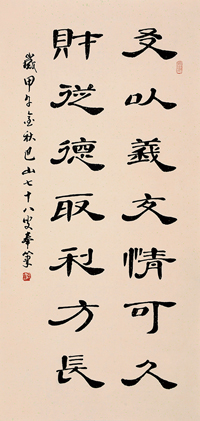 友以義交情可久
財從德取利方長
歲甲午金秋巴山七十八叟奉筆